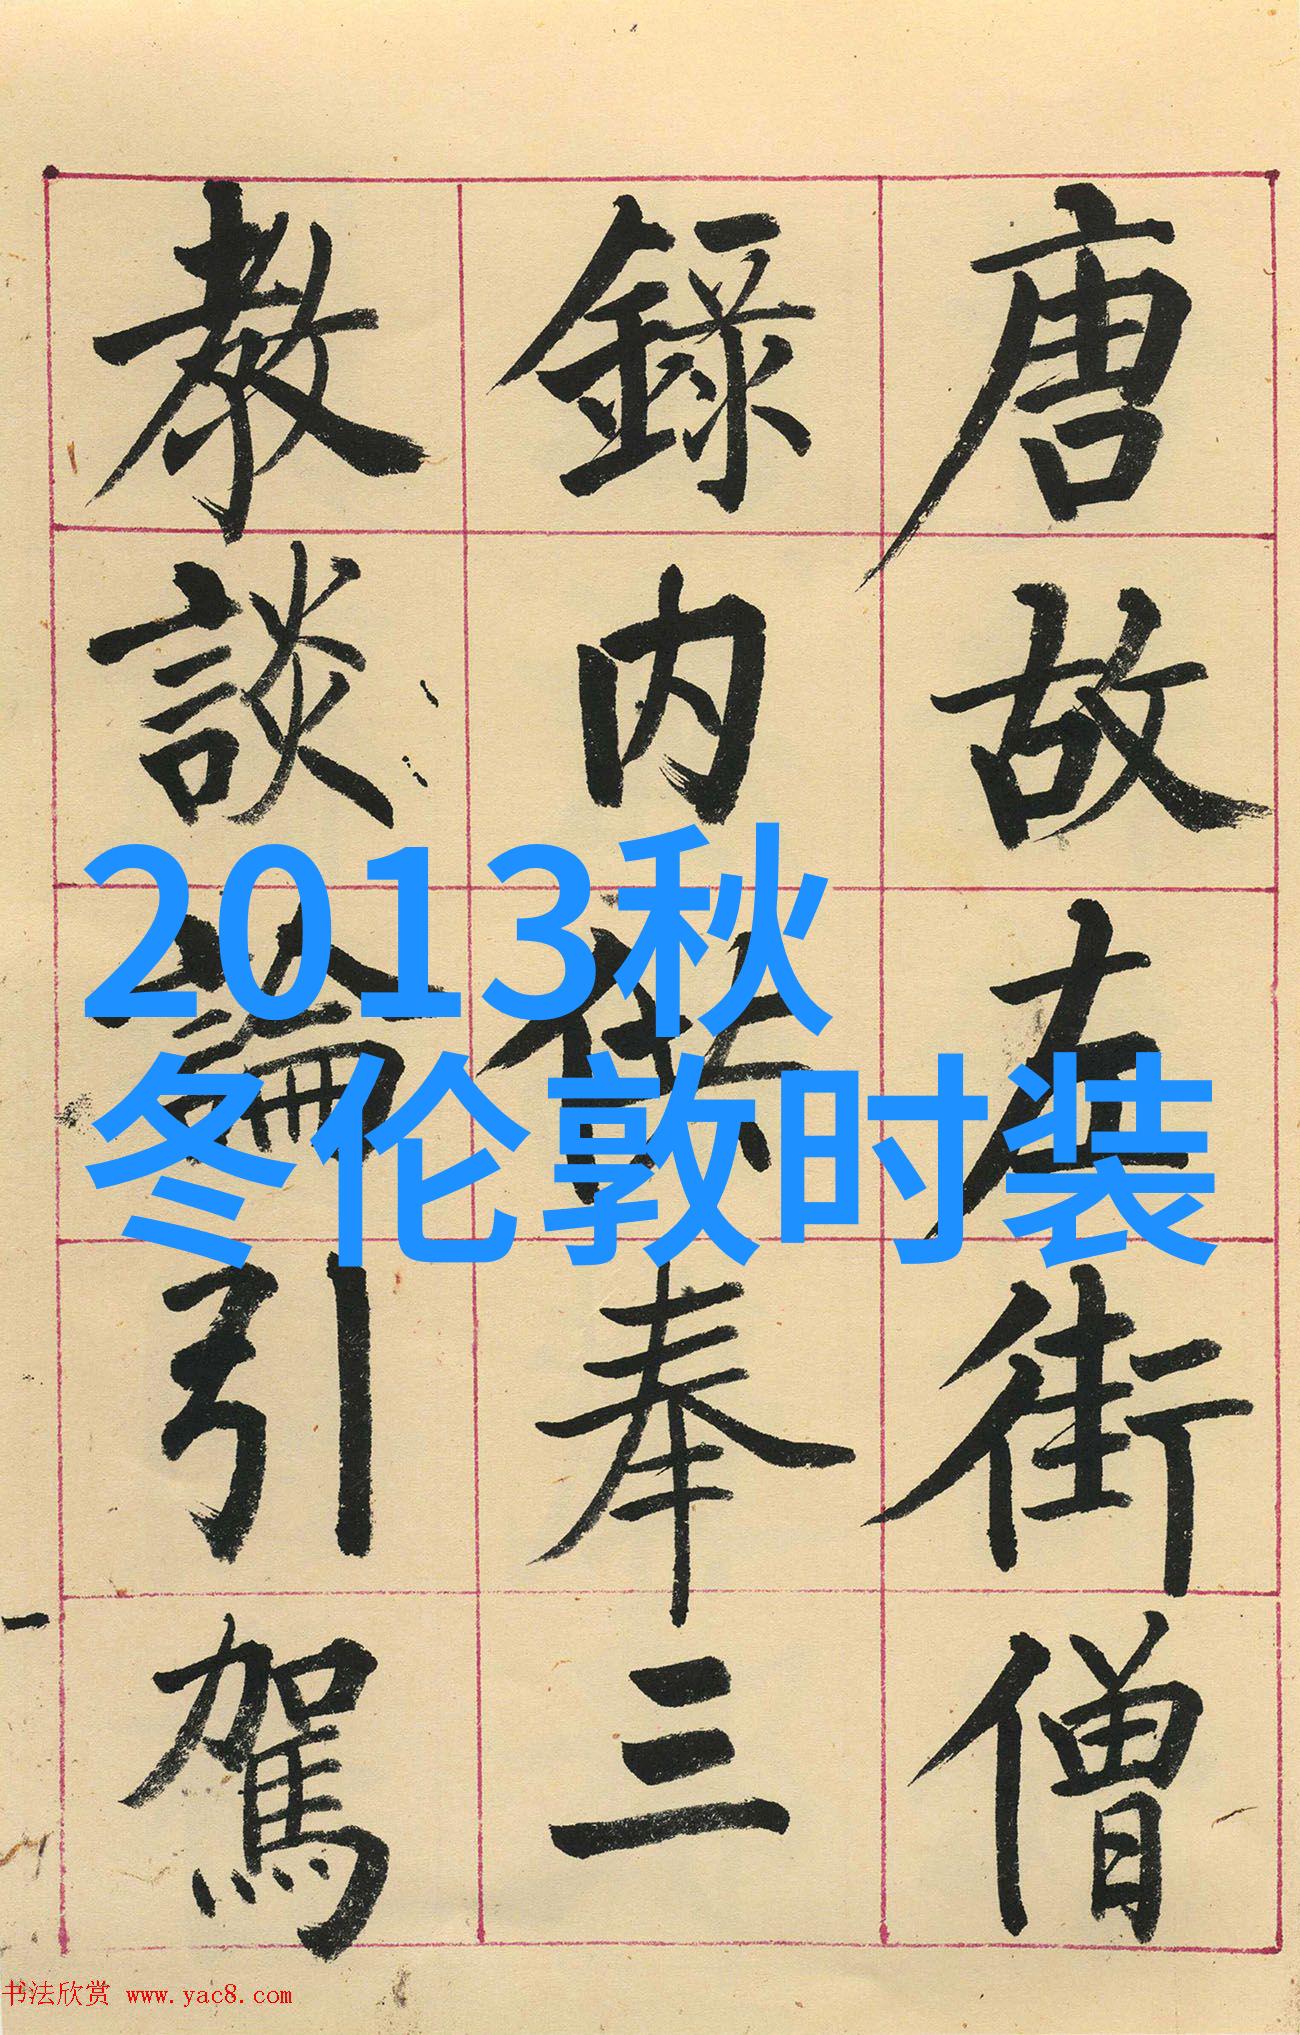 唐故左街僧
錄内供奉三
教談論引駕
2013秋
冬伦敦时装
书法欣赏 www.yac8.com